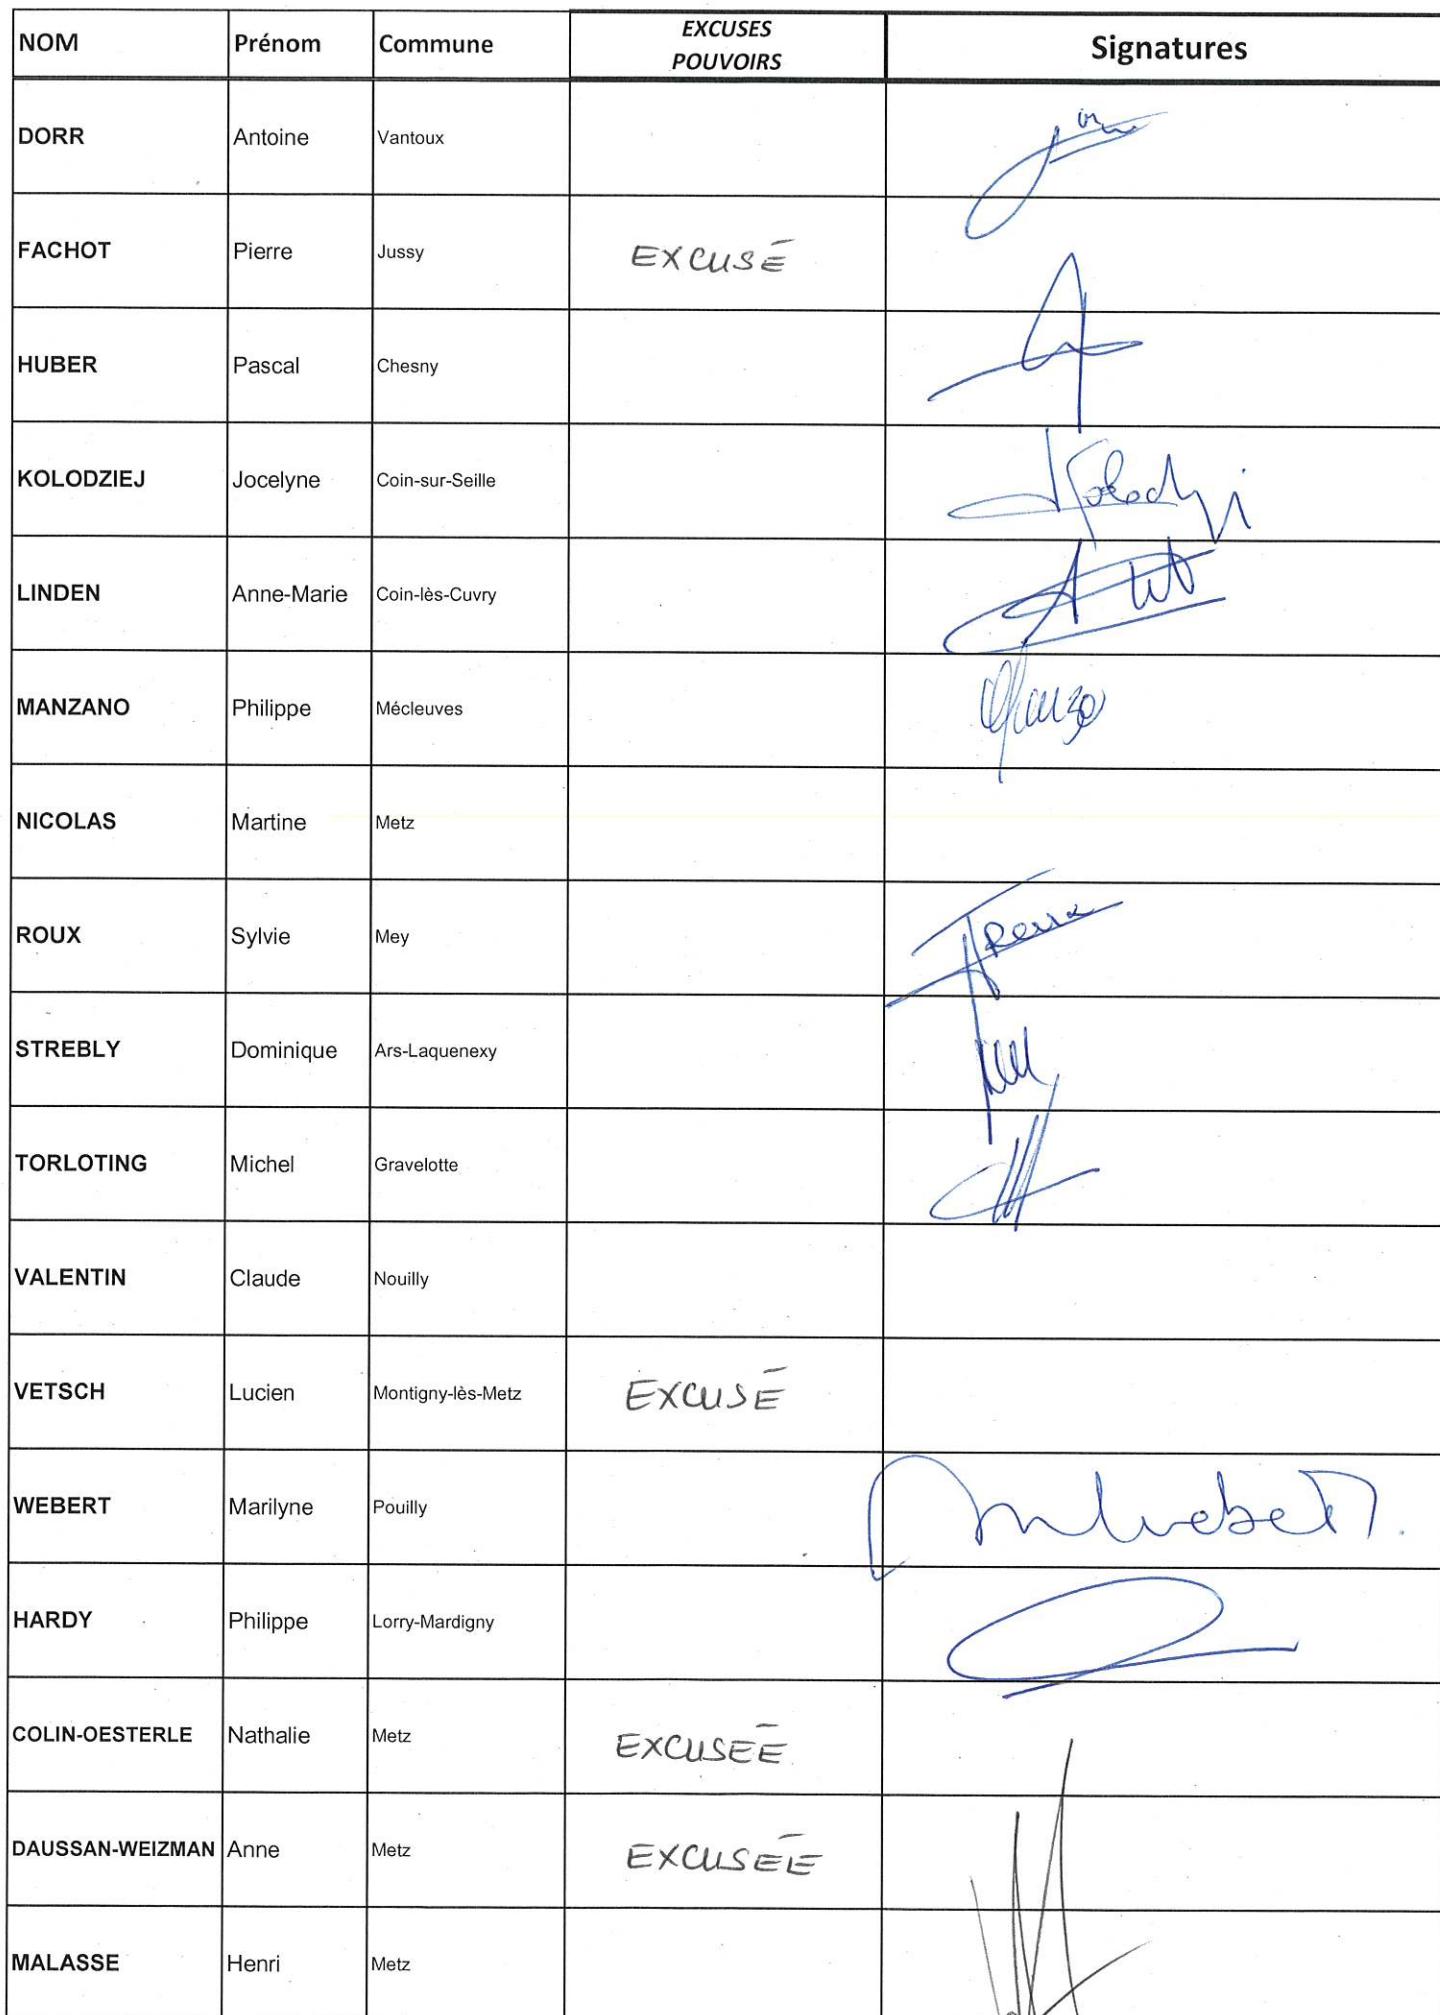 NOM Prénom Commune EXCUSES Signatures
POUVOIRS
DORR Antoine Vantoux
FACHOT Pierre Jussy EXCUSÉ
HUBER Pascal Chesny
KOLODZIEJ Jocelyne Coin-sur-Seille
LINDEN Anne-Marie Coin-lès-Cuvry
MANZANO Philippe Mécleuves
NICOLAS Martine Metz
ROUX Sylvie Mey
STREBLY Dominique Ars-Laquenexy
TORLOTING Michel Gravelotte
VALENTIN Claude Nouilly
VETSCH Lucien Montigny-lès-Metz EXCUSÉ
WEBERT Marilyne Pouilly
HARDY Philippe Lorry-Mardigny
COLIN-OESTERLE Nathalie Metz EXCUSÉE
DAUSSAN-WEIZMAN Anne Metz EXCUSÉE
MALASSE Henri Metz